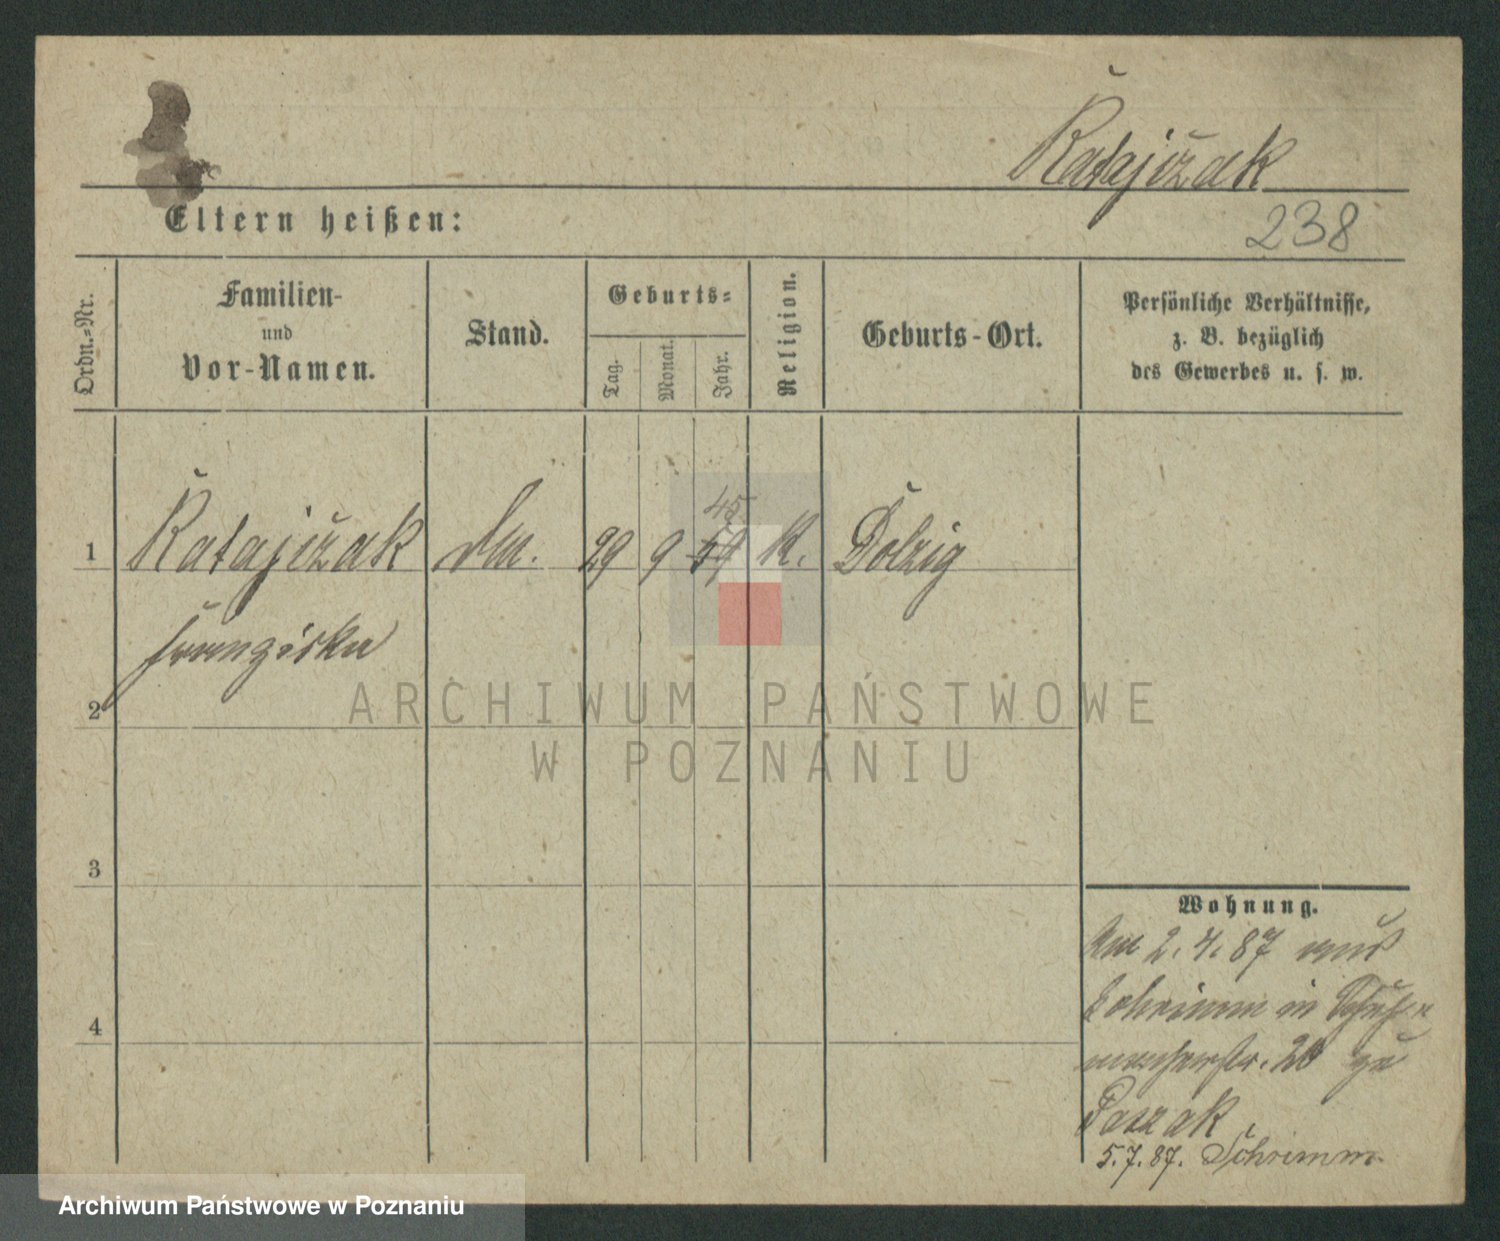 Ratajczak
238
Eltern heißen:
Ordn.-Nr.
Familien-
und
Vor-Namen.
Stand.
Geburts-
Tag.
Monat.
Jahr.
Religion.
Geburts-Ort.
Persönliche Verhältnisse,
z. B. bezüglich
des Gewerbes u. s. w.
45
1 Ratajczak 29 9 59 K. Dolzig
Franziska
2
3
4
ARCHIWUM PAŃSTWOWE
W POZNANIU
Wohnung.
Am 2. 4. 87 aus
Schrimm in Schuh-
macherstr. 20 zu
5. 7. 87. Schrimm.
Archiwum Państwowe w Poznaniu